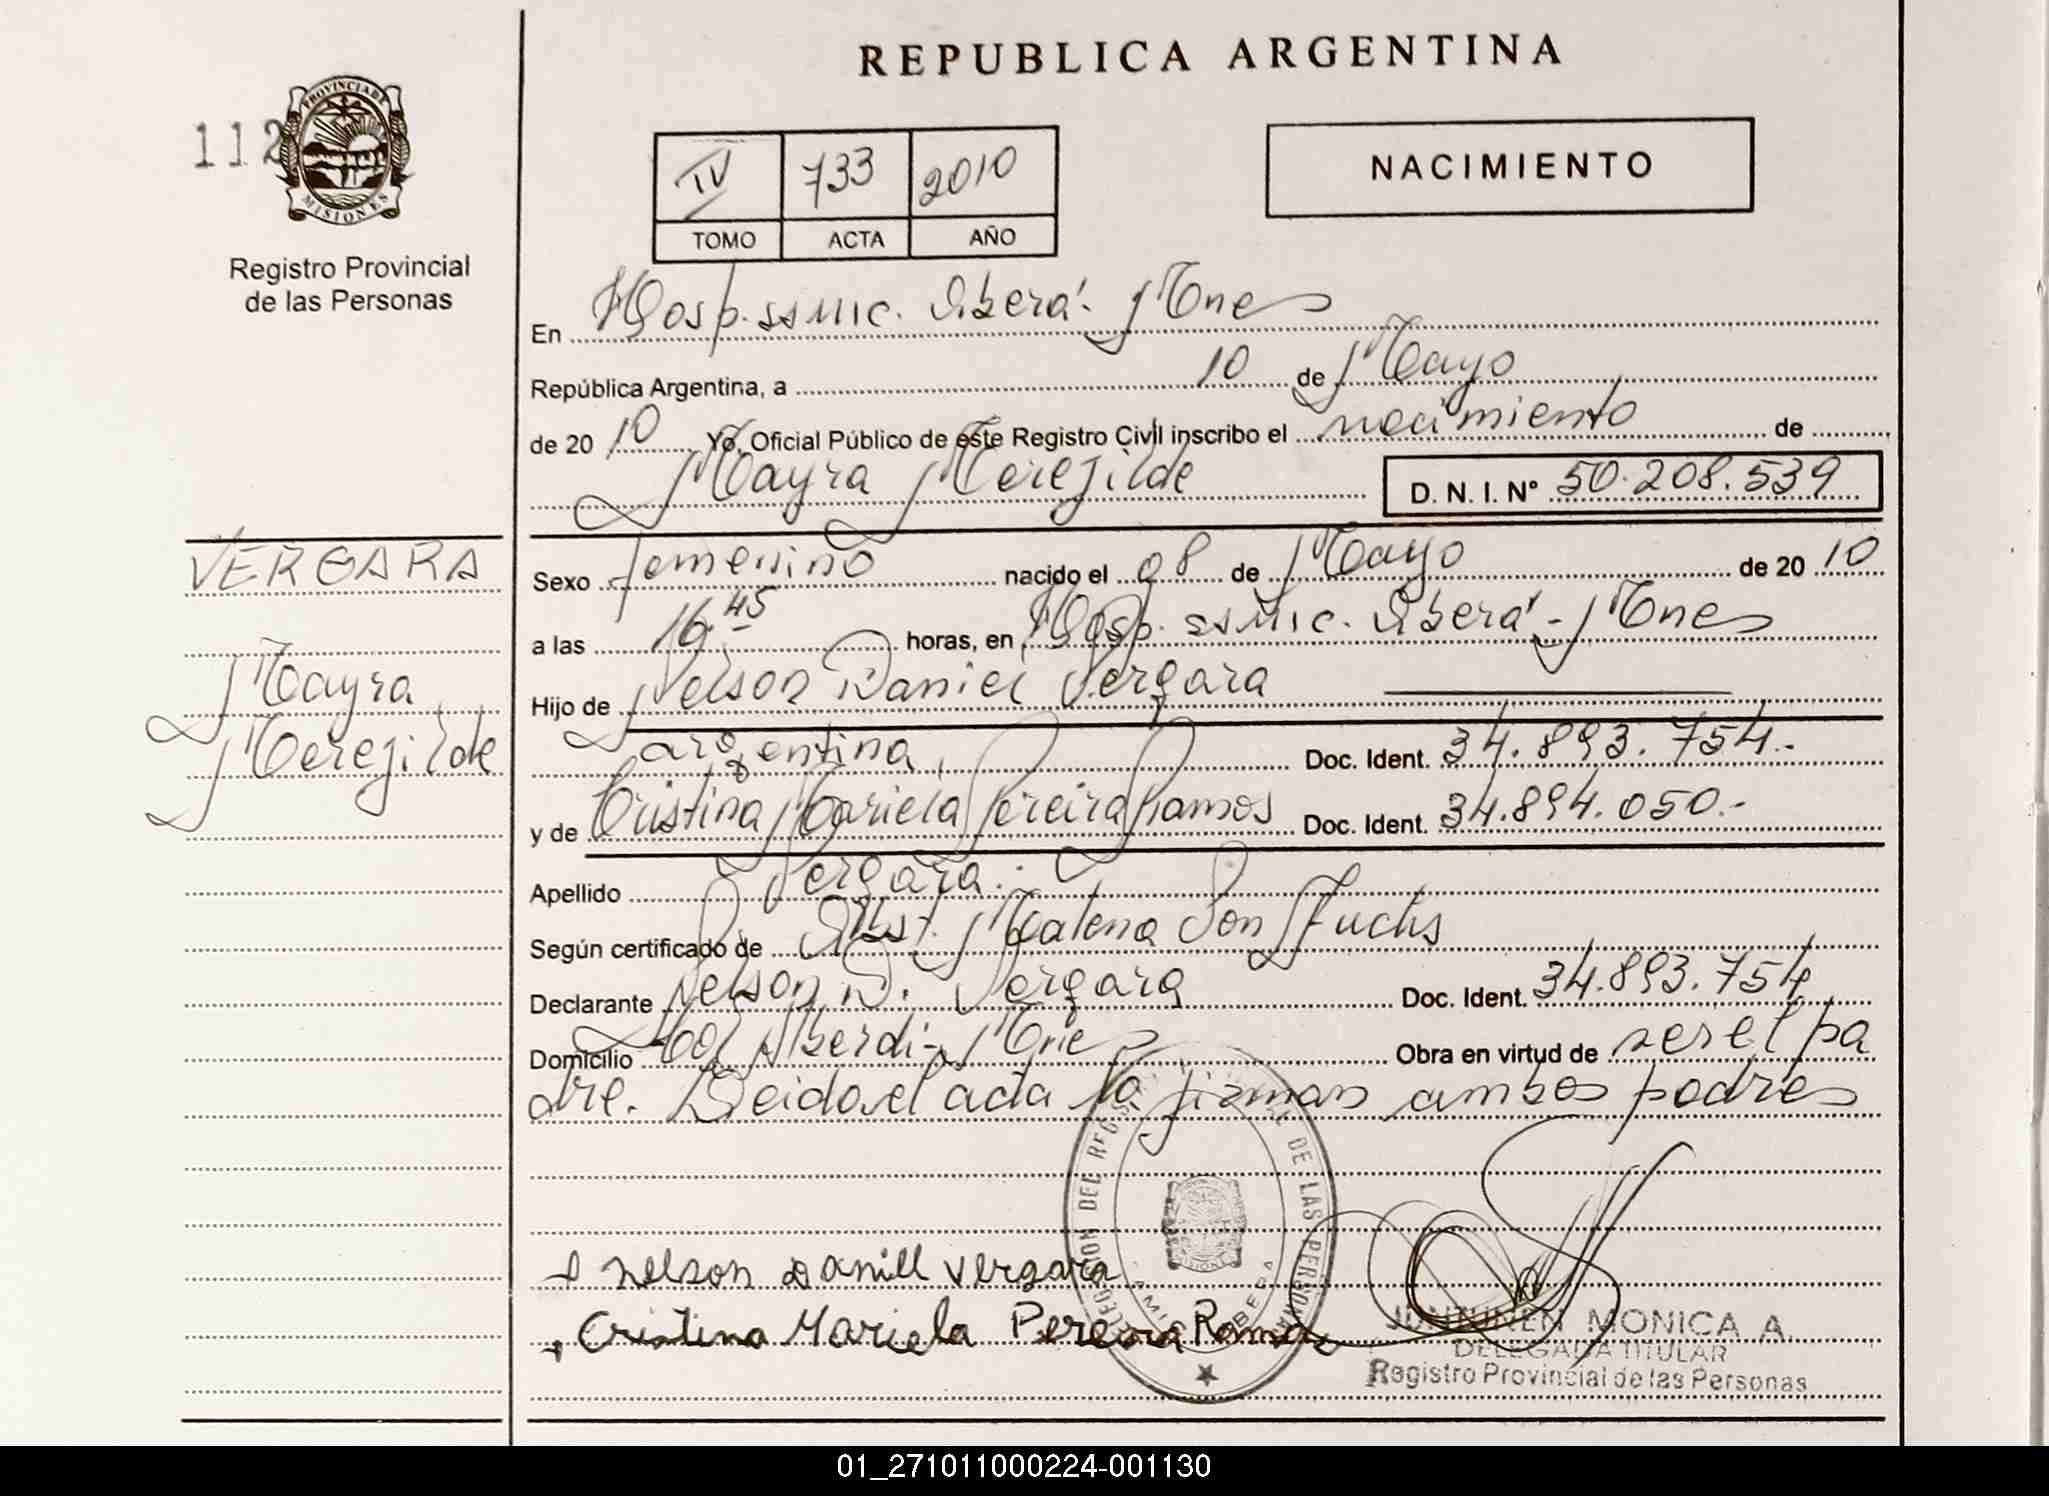 REPUBLICA ARGENTINA
112
PROVINCIA DE
MISIONES
Registro Provincial
de las Personas
IV 733 2010
TOMO ACTA AÑO
NACIMIENTO
En Hosp. SSMIC. Oberá - Mnes
República Argentina, a 10 de Mayo
de 20 10 Yo, Oficial Público de este Registro Civil inscribo el nacimiento de
Mayra Merejilde D. N. I. Nº 50.208.539
VERGARA
Mayra
Merejilde
Sexo femenino nacido el 08 de Mayo de 20 10
a las 16.45 horas, en Hosp. SSMIC. Oberá - Mnes
Hijo de Nelson Daniel Vergara
argentina, Doc. Ident. 34.893.754.-
y de Cristina Mariela Pereira Ramos Doc. Ident. 34.894.050.-
Apellido Vergara.
Según certificado de Obst. Malena Von Fuchs
Declarante Nelson D. Vergara Doc. Ident. 34.893.754
Domicilio Alberdi - Mnes Obra en virtud de ser el pa
dre. Leida el acta la firman ambos padres
Nelson Daniel Vergara
Cristina Mariela Pereira Ramos
DE LAS PERSONAS
JUNTUNEN MONICA A.
DELEGADA TITULAR
Registro Provincial de las Personas
01_271011000224-001130